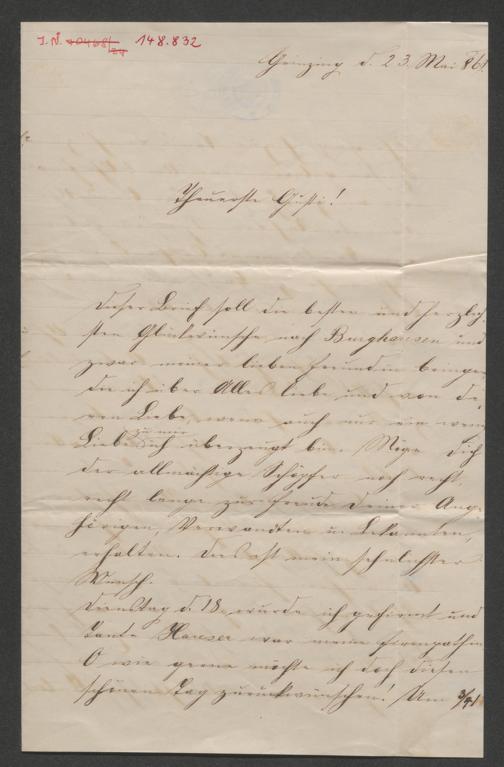 I.N. 40468/24 148.832
Grinzing d. 23. Mai 861
Theuerste Gusti!
Dieser Brief soll die besten und herzlich-
sten Glückwünsche nach Burghausen und
zwar meiner lieben Freundin bringen
die ich über Alles liebe und von de-
ren Liebe, wenn auch nur ein wenig
zu mir
Liebe ich überzeugt bin. Möge Dich
der allmächtige Schöpfer noch recht,
recht lange zur Freude deiner Ange-
hörigen, Verwandten u. Bekannten,
erhalten. Dies ist mein sehnlichster
Wunsch.
Dienstag d. 18. wurde ich gefirmt und
Tante Hauser war meine Firmpathin
O wie gerne möchte ich doch diesen
schönen Tag zurückwünschen! Um 3/41